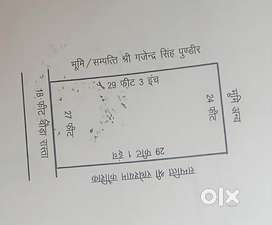 भूमि/सम्पत्ति श्री गजेन्द्र सिंह पुण्डीर
29 फीट 3 इंच
18 फीट चौडा रास्ता
27 फीट
24 फीट
भूमि अन्य
29 फीट 1 इंच
सम्पत्ति श्री राधेश्याम कौशिक
olx